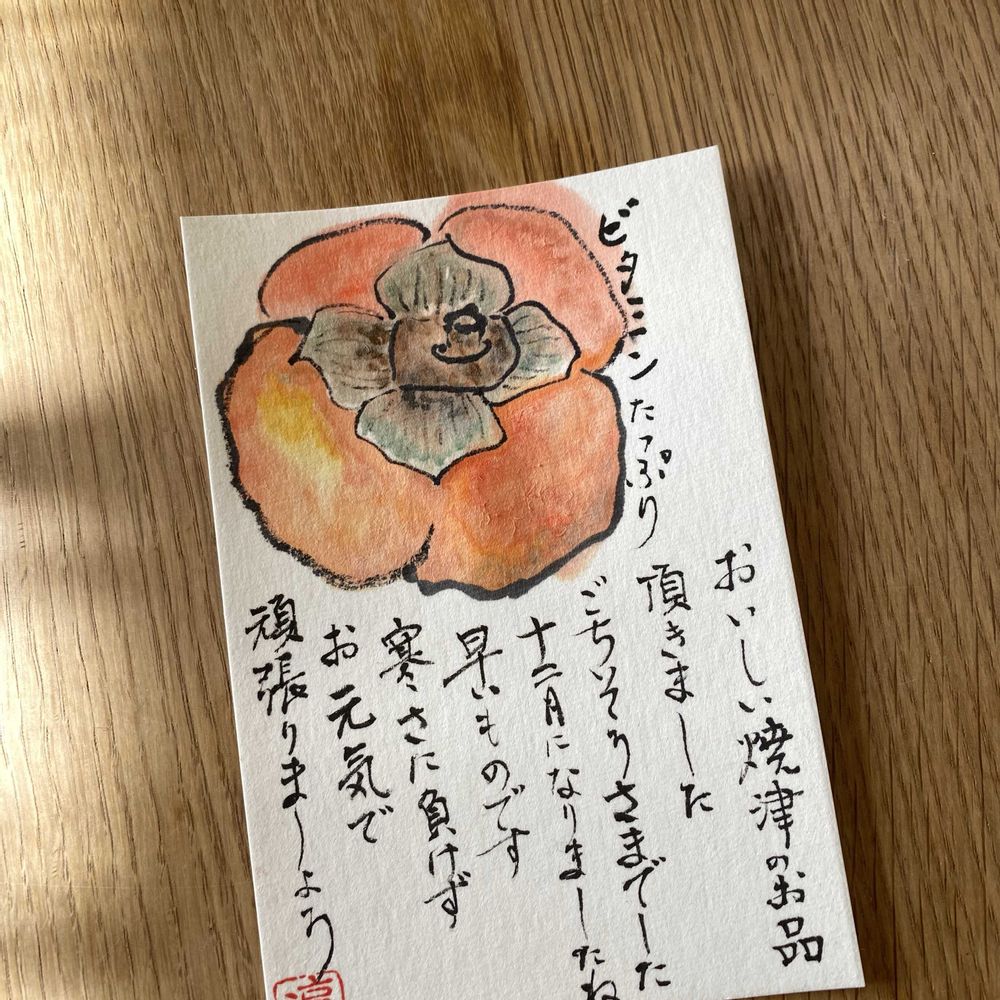 ビタミンたっぷり
おいしい焼津のお品
頂きました
ごちそうさまでした
十二月になりましたね
早いものです
寒さに負けず
お元気で
頑張りましょう